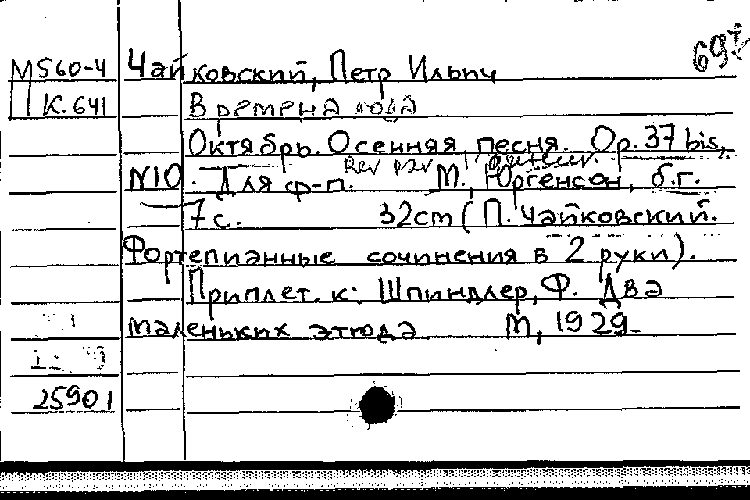 69
М560-4 Чайковский, Петр Ильич
К.641 Времена года
Октябрь. Осенняя песня. Op. 37 bis,
N10. Для ф-п. М., Юргенсон, б.г.
7 с. 32cm (П. Чайковский.
Фортепианные сочинения в 2 руки).
Приплет. к: Шпиндлер, Ф. Два
маленьких этюда М, 1929.
25901